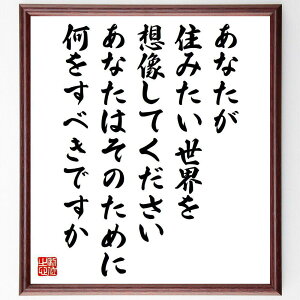 あなたが
住みたい世界を
想像してください
あなたはそのために
何をすべきですか